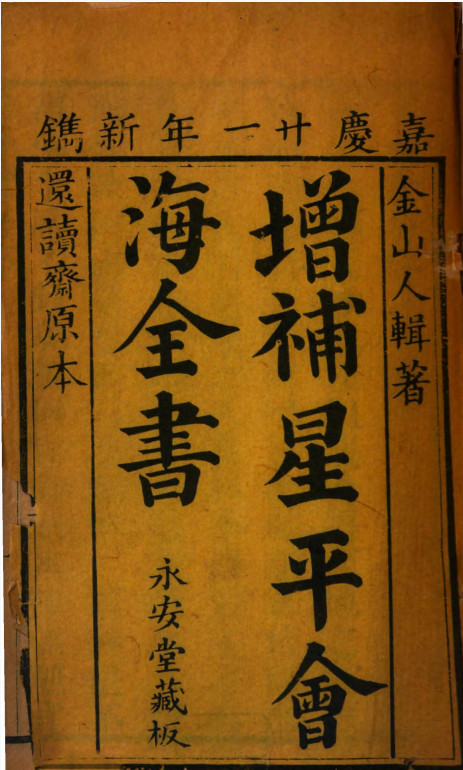 嘉慶廿一年新鐫
金山人輯著
增補星平會
海全書
永安堂藏板
還讀齋原本